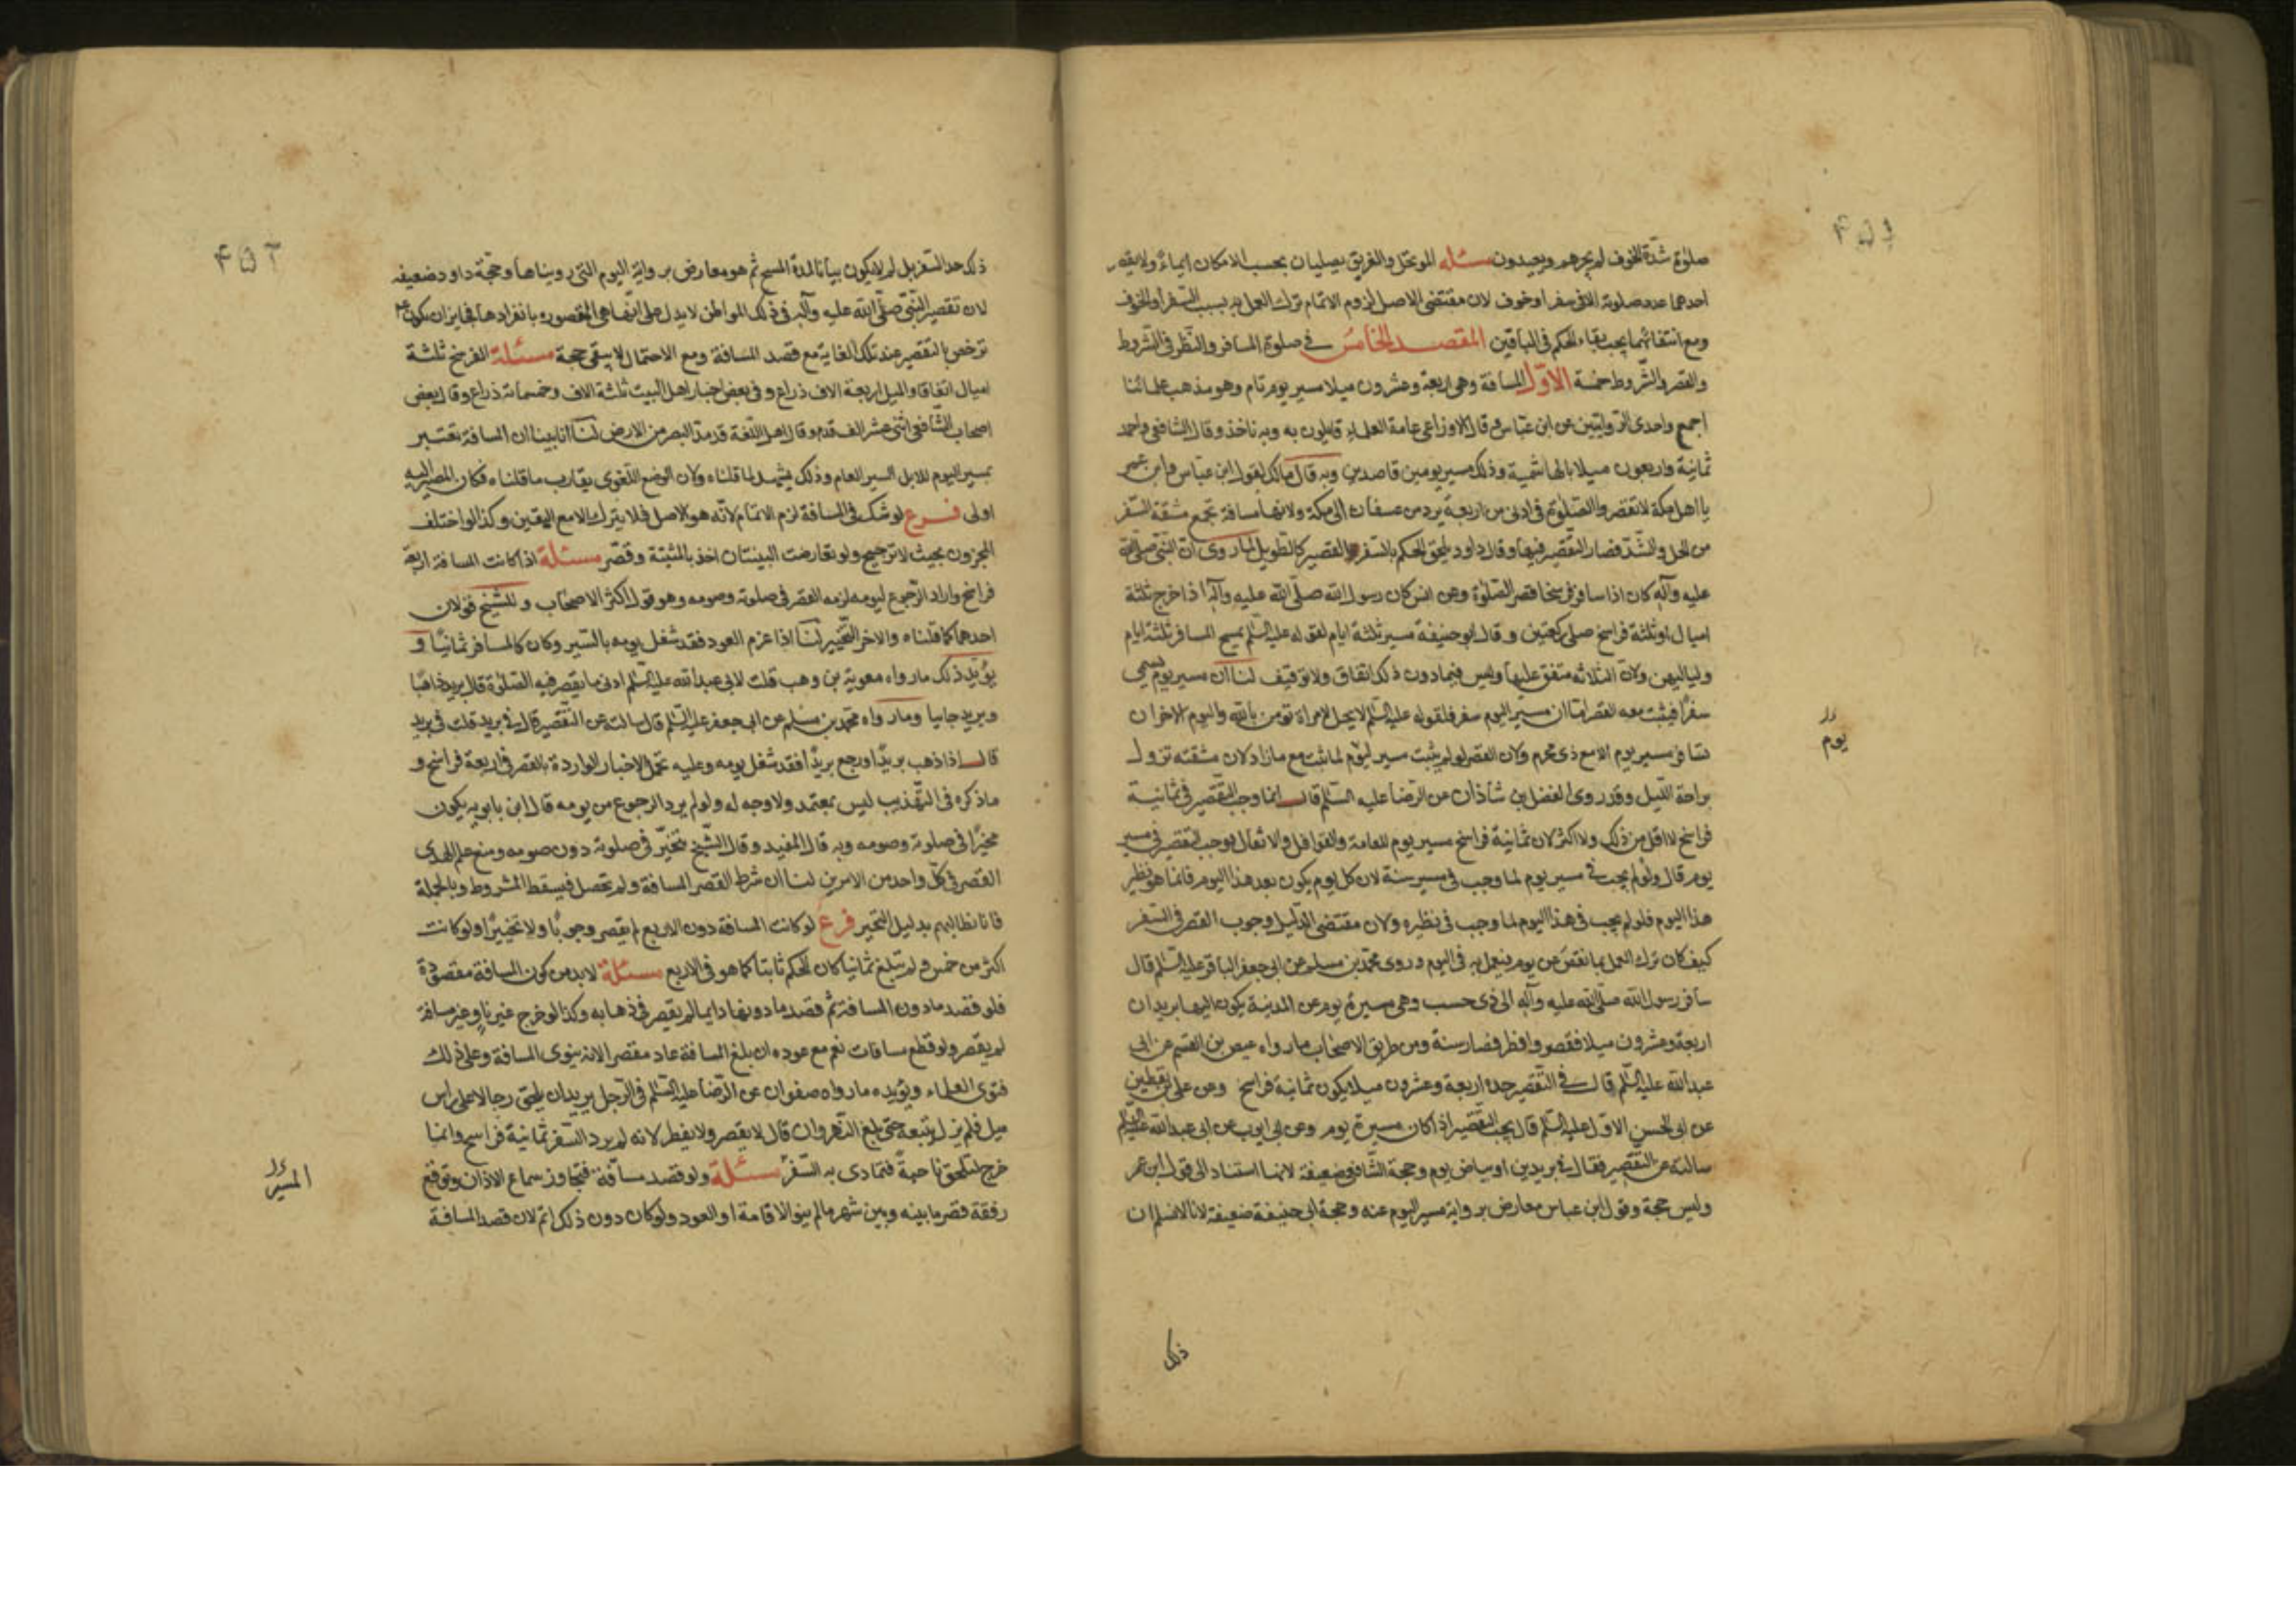 ٤٥١
صلوة شدّة الخوف لم يجزهم ويعيدون مسئله الموتحل والغريق يصليان بحسب الامكان ايماءً ولا يقصر
احدهما عدد صلوته الا فى سفر او خوف لان مقتضى الاصل لزوم الاتمام ترك العمل به بسبب السفر او الخوف
ومع انتفائهما يجب بقاء الحكم فى الباقين المقصد الخامس فى صلوة المسافر والنظر فى الشروط
والقصر والشروط خمسة الاوّل المسافة وهى اربعة وعشرون ميلا مسير يوم تام وهو مذهب علمائنا
اجمع واحدى الروايتين عن ابن عباس وقال الاوزاعى عامة العلماء قايلون به وبه ناخذ وقال الشافعى واحمد
ثمانية واربعون ميلا بالهاشمية وذلك مسير يومين قاصدين وبه قال مالك لقول ابن عباس وابن عمر
يا اهل مكة لا تقصروا الصلوة فى ادنى من اربعة برد من عسفان الى مكة ولانها مسافة تجمع مشقة السفر
من الحل والشدّ فصار التقصير فيها وقال داود يلحق الحكم بالسفر القصير كالطويل لما روى ان النبى صلى الله
عليه وآله كان اذا سافر فرسخا قصر الصلوة وعن انس كان رسول الله صلّى الله عليه وآله اذا خرج ثلثة
اميال او ثلثة فراسخ صلى ركعتين وقال ابو حنيفة مسير ثلثة ايام لقوله عليه السّلم يمسح المسافر ثلثة ايام
ولياليهن ولان الثلاثه متفق عليها وليس فيما دون ذلك اتفاق ولا توقيف لنا ان مسير يوم يسمى
سفرًا فيثبت معه القصر امّا ان مسير اليوم سفر فلقوله عليه السّلم لا يحل لامراة تؤمن بالله واليوم الاخر ان
تسافر مسير يوم الا مع ذى محرم ولان القصر لو لم يثبت سير اليوم لما ثبت مع ما زاد لان مشقته تزول
يوم
براحة الليل وقد روى الفضل بن شاذان عن الرضا عليه السّلم قال انما وجب التقصير فى ثمانية
فراسخ لا اقل من ذلك ولا اكثر لان ثمانية فراسخ مسير يوم للعامة والقوافل والاثقال فوجب التقصير فى مسير
يوم قال ولو لم يجب فى مسير يوم لما وجب فى مسير سنة لان كل يوم يكون بعد هذا اليوم فانما هو نظير
هذا اليوم فلو لم يجب فى هذا اليوم لما وجب فى نظيره ولان مقتضى الدّليل وجوب القصر فى السّفر
كيف كان ترك العمل بما نقص عن يوم فيعمل به فى اليوم وروى محمد بن مسلم عن ابى جعفر الباقر عليه السّلم قال
سافر رسول الله صلّى الله عليه وآله الى ذى خشب وهى مسيرة يوم عن المدينة يكون اليها بريدان
اربعة وعشرون ميلا فقصر وافطر فصار سنة ومن طريق الاصحاب ما رواه عيص بن القسم عن ابى
عبد الله عليه السّلم قال فى التقصير حده اربعة وعشرون ميلا يكون ثمانية فراسخ وعن على بن يقطين
عن ابى الحسن الاوّل عليه السّلم قال يجب التقصير اذا كان مسيرة يوم وعن ابى ايوب عن ابى عبد الله عليه السّلم
سالته عن التقصير فقال فى بريدين او بياض يوم وحجة الشّافعى ضعيفة لانها استناد الى قول ابن عمر
وليس حجة وقول ابن عباس معارض برواية مسير اليوم عنه وحجة ابى حنيفة ضعيفة لانا لا نسلم ان
ذلك
٤٥٢
ذلك حد السفر بل لم لا يكون بيانا لمدة المسح ثم هو معارض برواية اليوم التى رويناها وحجّة داود ضعيفه
لان تقصير النّبىّ صلّى الله عليه وآله فى ذلك المواطن لا يدل على انها هى المقصوره بانفرادها فجايز ان يكون
ترخص بالتقصير عند تلك الغاية مع قصد المسافة ومع الاحتمال لا يبقى حجة مسئلة الفرسخ ثلثة
اميال اتفاقا والميل اربعة الاف ذراع وفى بعض اخبار اهل البيت ثلثة الاف وخمسمائة ذراع وقال بعض
اصحاب الشّافعى اثنى عشر الف قدم وقال اهل اللّغة قدر مدّ البصر من الارض لنا انا بينا ان المسافة تعتبر
بمسير اليوم للابل السير العام وذلك يشهد لما قلناه ولان الوضع اللّغوى يقارب ما قلناه فكان المصير اليه
اولى فرع لو شك فى المسافة لزم الاتمام لانّه هو الاصل فلا يترك الا مع اليقين وكذا لو اختلف
المخبرون بحيث لا ترجيح ولو تعارضت البينتان اخذ بالمثبتة وقصّر مسئلة اذا كانت المسافة اربعة
فراسخ واراد الرّجوع ليومه لزمه القصر فى صلوته وصومه وهو قول اكثر الاصحاب وللشّيخ قولان
احدهما كما قلناه والاخر التّخيير لنا اذا عزم العود فقد شغل يومه بالسّير وكان كالمسافر ثمانيًا و
يؤيّد ذلك ما رواه معوية بن وهب قلت لابى عبد الله عليه السّلم ادنى ما يقصر فيه الصّلوة قال بريد ذاهبًا
وبريد جايبا وما رواه محمد بن مسلم عن ابى جعفر عليه السّلم قال سالته عن التّقصير قال فى بريد قلت فى بريد
قال اذا ذهب بريدًا ورجع بريدًا فقد شغل يومه وعليه تحمل الاخبار الواردة بالقصر فى اربعة فراسخ و
ما ذكره فى التّهذيب ليس بمعتمد ولا وجه له ولو لم يرد الرجوع من يومه قال ابن بابويه يكون
مخيّرًا فى صلوته وصومه وبه قال المفيد وقال الشّيخ يتخيّر فى صلوته دون صومه ومنع علم الهدى
القصر فى كلّ واحد من الامرين لنا ان شرط القصر المسافة ولم تحصل فيسقط المشروط وبالجملة
فانا نطالبهم بدليل التخيير فرع لو كانت المسافة دون الاربع لم يقصر وجوبًا ولا تخييرًا ولو كانت
اكثر من خمس ولم تبلغ ثمانيا كان الحكم ثابتا كما هو فى الاربع مسئلة لا بد من كون المسافة مقصودة
فلو قصد ما دون المسافة ثم قصد ما دونها دايما لم يقصر فى ذهابه وكذا لو خرج غير ناوٍ وغير مسافة
لم يقصر ولو قطع مسافات نعم مع عوده ان بلغ المسافة عاد مقصرا لانه ينوى المسافة وعلى ذلك
فتوى العلماء ويؤيده ما رواه صفوان عن الرّضا عليه السّلم فى الرّجل يريد ان يلحق رجلا على راس
ميل فلم يزل يتبعه حتّى بلغ النّهروان قال لا يقصر ولا يفطر لانه لم يرد السّفر ثمانية فراسخ وانما
خرج ليلحق صاحبه فتمادى به السّفر مسئلة ولو قصد مسافة فتجاوز سماع الاذان وتوقع
المسير
رفقة قصر ما بينه وبين شهر ما لم ينو الاقامة او العود ولو كان دون ذلك اتم لان قصد المسافة